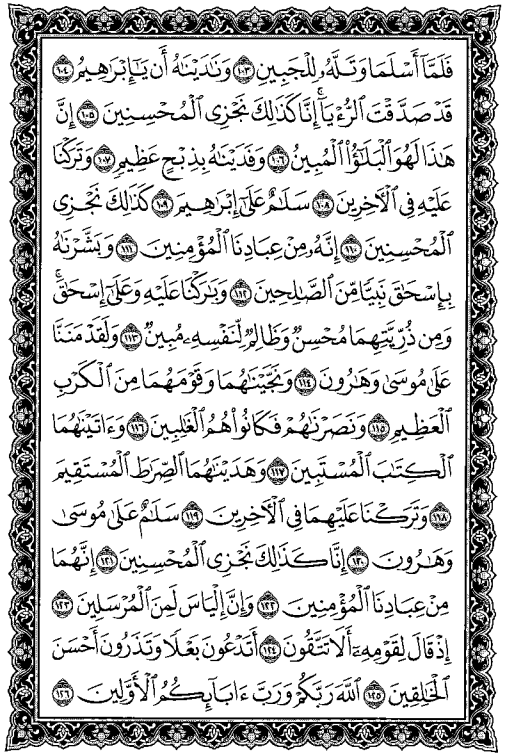 فَلَمَّآ أَسْلَمَا وَتَلَّهُۥ لِلْجَبِينِ ١٠٣ وَنَٰدَيْنَٰهُ أَن يَٰٓإِبْرَٰهِيمُ ١٠٤
قَدْ صَدَّقْتَ ٱلرُّءْيَآ ۚ إِنَّا كَذَٰلِكَ نَجْزِى ٱلْمُحْسِنِينَ ١٠٥ إِنَّ
هَٰذَا لَهُوَ ٱلْبَلَٰٓؤُا۟ ٱلْمُبِينُ ١٠٦ وَفَدَيْنَٰهُ بِذِبْحٍ عَظِيمٍ ١٠٧ وَتَرَكْنَا
عَلَيْهِ فِى ٱلْءَاخِرِينَ ١٠٨ سَلَٰمٌ عَلَىٰٓ إِبْرَٰهِيمَ ١٠٩ كَذَٰلِكَ نَجْزِى
ٱلْمُحْسِنِينَ ١١٠ إِنَّهُۥ مِنْ عِبَادِنَا ٱلْمُؤْمِنِينَ ١١١ وَبَشَّرْنَٰهُ
بِإِسْحَٰقَ نَبِيًّا مِّنَ ٱلصَّٰلِحِينَ ١١٢ وَبَٰرَكْنَا عَلَيْهِ وَعَلَىٰٓ إِسْحَٰقَ ۚ
وَمِن ذُرِّيَّتِهِمَا مُحْسِنٌ وَظَالِمٌ لِّنَفْسِهِۦ مُبِينٌ ١١٣ وَلَقَدْ مَنَنَّا
عَلَىٰ مُوسَىٰ وَهَٰرُونَ ١١٤ وَنَجَّيْنَٰهُمَا وَقَوْمَهُمَا مِنَ ٱلْكَرْبِ
ٱلْعَظِيمِ ١١٥ وَنَصَرْنَٰهُمْ فَكَانُوا۟ هُمُ ٱلْغَٰلِبِينَ ١١٦ وَءَاتَيْنَٰهُمَا
ٱلْكِتَٰبَ ٱلْمُسْتَبِينَ ١١٧ وَهَدَيْنَٰهُمَا ٱلصِّرَٰطَ ٱلْمُسْتَقِيمَ
١١٨ وَتَرَكْنَا عَلَيْهِمَا فِى ٱلْءَاخِرِينَ ١١٩ سَلَٰمٌ عَلَىٰ مُوسَىٰ
وَهَٰرُونَ ١٢٠ إِنَّا كَذَٰلِكَ نَجْزِى ٱلْمُحْسِنِينَ ١٢١ إِنَّهُمَا
مِنْ عِبَادِنَا ٱلْمُؤْمِنِينَ ١٢٢ وَإِنَّ إِلْيَاسَ لَمِنَ ٱلْمُرْسَلِينَ ١٢٣
إِذْ قَالَ لِقَوْمِهِۦٓ أَلَا تَتَّقُونَ ١٢٤ أَتَدْعُونَ بَعْلًا وَتَذَرُونَ أَحْسَنَ
ٱلْخَٰلِقِينَ ١٢٥ ٱللَّهَ رَبَّكُمْ وَرَبَّ ءَابَآئِكُمُ ٱلْأَوَّلِينَ ١٢٦